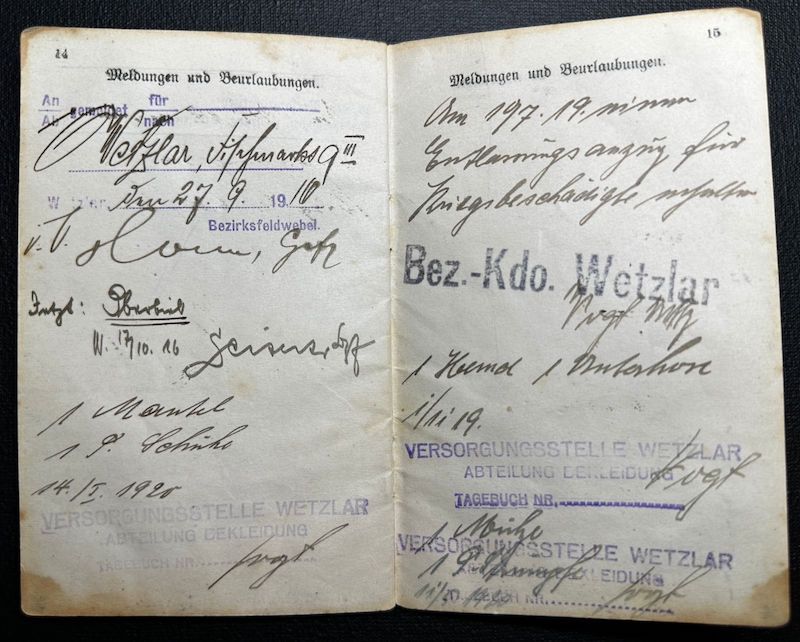 14
Meldungen und Beurlaubungen.
An
Ab gemeldet für
nach
Wetzlar,
Wetzlar den 27. 9. 1916
Bezirksfeldwebel.
i. V.
Jetzt: Oberbiel
W. 17/10. 16
1 Mantel
1 P. Schuhe
14./I. 1920
VERSORGUNGSSTELLE WETZLAR
ABTEILUNG BEKLEIDUNG
TAGEBUCH NR.
Vogt
15
Meldungen und Beurlaubungen.
Am 19.7.19. einen
Entlassungsanzug für
Kriegsbeschädigte erhalten
Bez.-Kdo. Wetzlar
Vogt
1 Hemd 1 Unterhose
VERSORGUNGSSTELLE WETZLAR
ABTEILUNG BEKLEIDUNG
Vogt
TAGEBUCH NR.
1 Mütze
VERSORGUNGSSTELLE WETZLAR
ABTEILUNG BEKLEIDUNG
TAGEBUCH NR.
Vogt